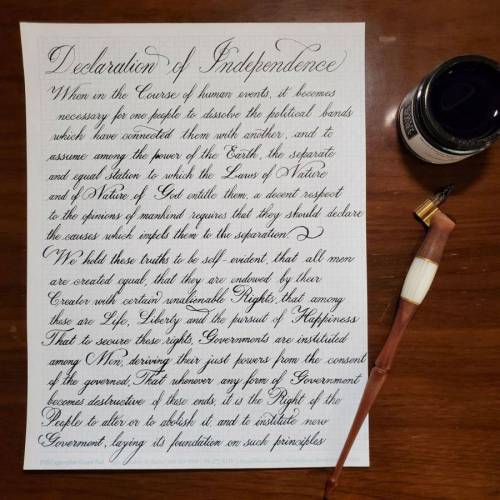 Declaration of Independence
When in the Course of human events, it becomes
necessary for one people to dissolve the political bands
which have connected them with another, and to
assume among the power of the Earth, the separate
and equal station to which the Laws of Nature
and of Nature of God entitle them, a decent respect
to the opinions of mankind requires that they should declare
the causes which impels them to the separation.
We hold these truths to be self-evident, that all men
are created equal, that they are endowed by their
Creator with certain unalienable Rights, that among
these are Life, Liberty and the pursuit of Happiness
That to secure these rights, Governments are instituted
among Men, deriving their just powers from the consent
of the governed, That whenever any form of Government
becomes destructive of these ends, it is the Right of the
People to alter or to abolish it, and to institute new
Goverment, laying its foundation on such principles